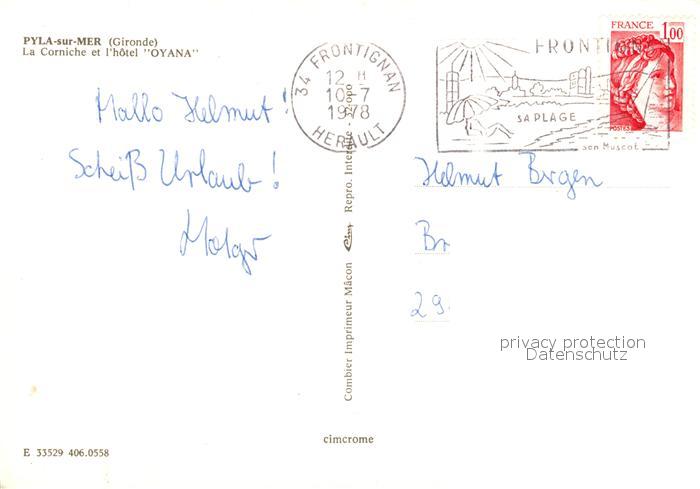 PYLA-sur-MER (Gironde)
La Corniche et l'hôtel "OYANA"
34 FRONTIGNAN
12 H
10-7
1978
HERAULT
FRONTI
SA PLAGE
son Muscat
FRANCE 1,00
POSTES
Hallo Helmut!
Scheiß Urlaub!
Holger
Helmut Bergen
Br
29
Combier Imprimeur Mâcon Cim Repro. Interdite
privacy protection
Datenschutz
cimcrome
E 33529 406.0558